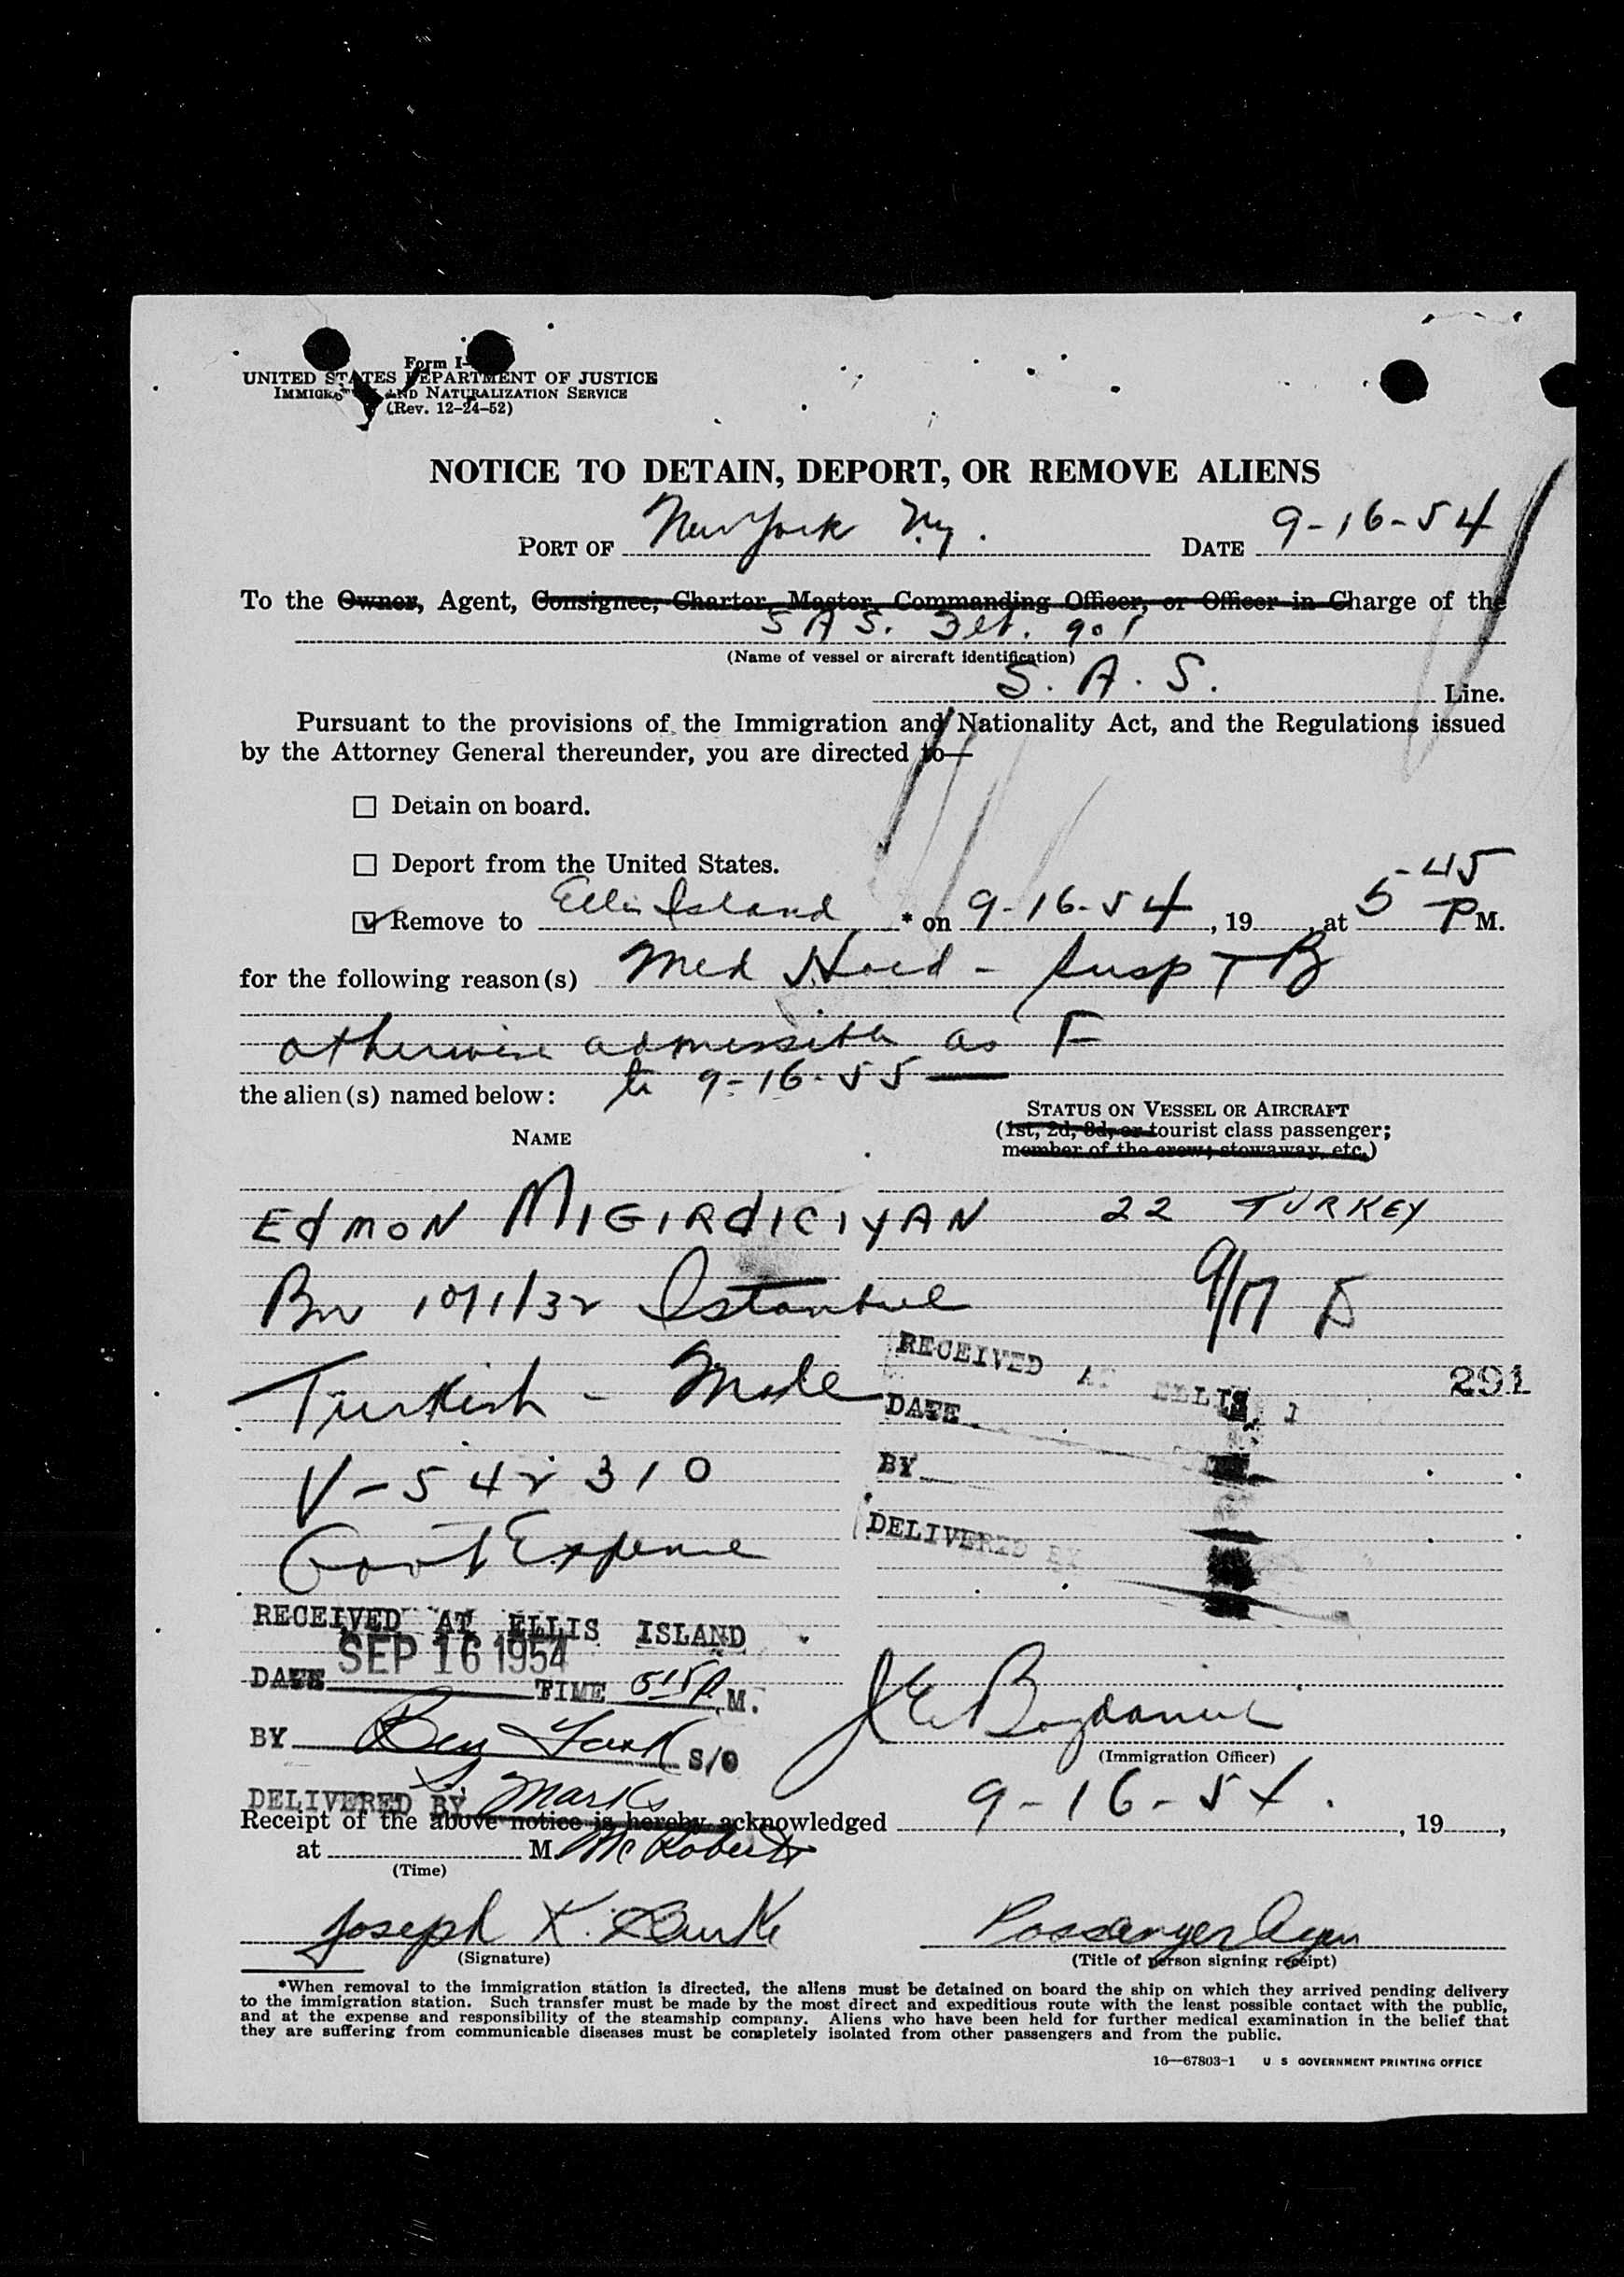 Form I-
UNITED STATES DEPARTMENT OF JUSTICE
IMMIGRATION AND NATURALIZATION SERVICE
(Rev. 12-24-52)
NOTICE TO DETAIN, DEPORT, OR REMOVE ALIENS
PORT OF New York N.y. DATE 9-16-54
To the Owner, Agent, Consignee, Charter, Master, Commanding Officer, or Officer in Charge of the
S A S. Flt. 901
(Name of vessel or aircraft identification)
S. A. S. Line.
Pursuant to the provisions of the Immigration and Nationality Act, and the Regulations issued
by the Attorney General thereunder, you are directed to—
☐ Detain on board.
☐ Deport from the United States.
☑ Remove to Ellis Island * on 9-16-54, 19 , at 5-45 P M.
for the following reason(s) Med Hold - Susp T B
otherwise admissible as F
to 9-16-55
the alien(s) named below:
NAME
STATUS ON VESSEL OR AIRCRAFT
(1st, 2d, 3d, or tourist class passenger;
member of the crew; stowaway, etc.)
EdMON MIGIRdICIYAN 22 TURKEY
Bn 10/1/32 Istanbul 9/17 D
Turkish - Male
RECEIVED AT ELLIS I
291
DATE
V-542310
BY
Govt Expense
DELIVERED BY
RECEIVED AT ELLIS ISLAND
SEP 16 1954
DATE TIME 515 P. M.
BY S/O
(Immigration Officer)
DELIVERED BY Marks
9-16-54.
Receipt of the above notice is hereby acknowledged , 19 ,
at M. McRoberts
(Time)
Joseph K. Burke Passenger Agen
(Signature) (Title of person signing receipt)
*When removal to the immigration station is directed, the aliens must be detained on board the ship on which they arrived pending delivery
to the immigration station. Such transfer must be made by the most direct and expeditious route with the least possible contact with the public,
and at the expense and responsibility of the steamship company. Aliens who have been held for further medical examination in the belief that
they are suffering from communicable diseases must be completely isolated from other passengers and from the public.
16—67803-1 U S GOVERNMENT PRINTING OFFICE